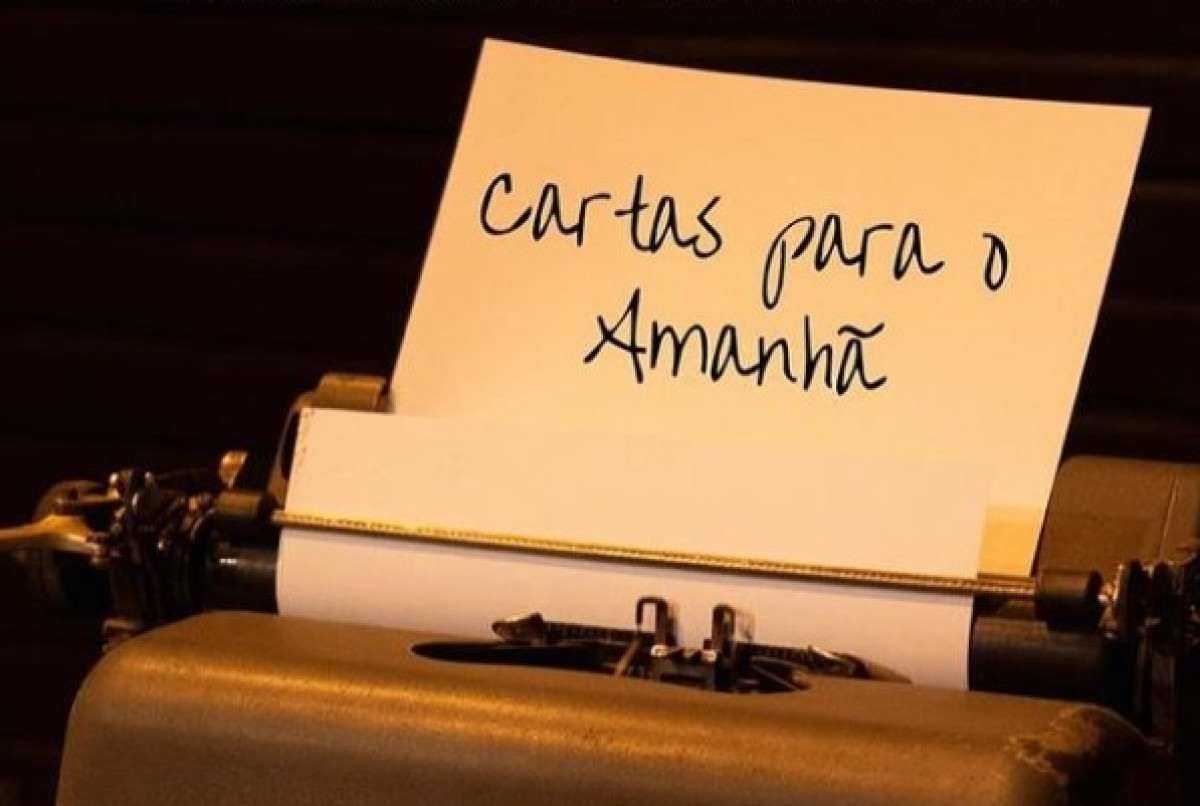 Cartas para o
Amanhã